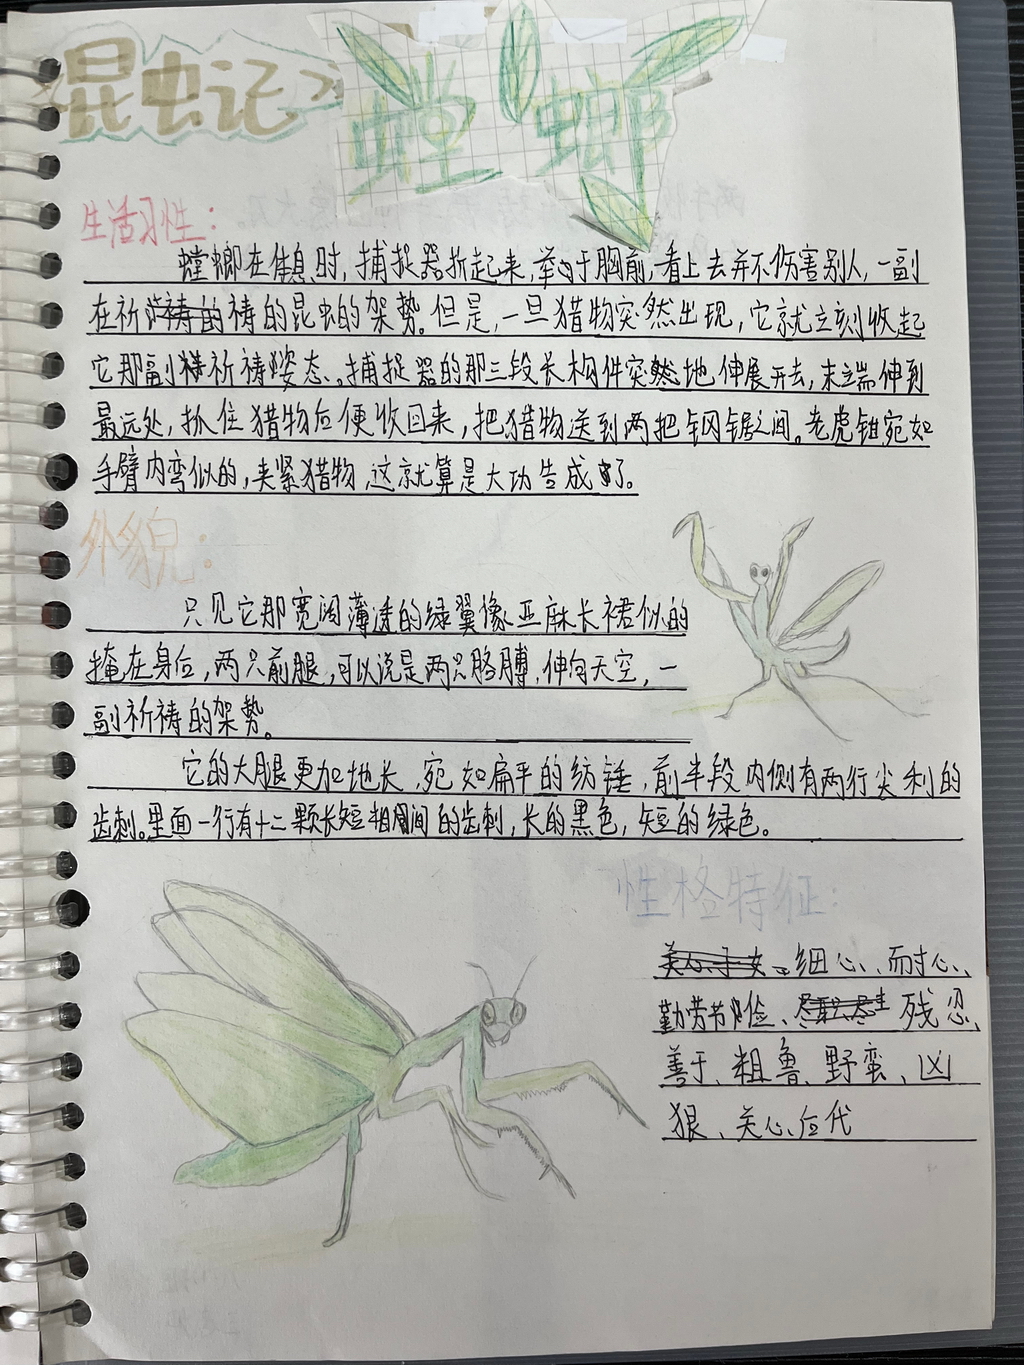 昆虫记
螳螂
生活习性：
螳螂在休息时，捕捉器折起来，举于胸前，看上去并不伤害别人，一副
在祈祷的昆虫的架势。但是，一旦猎物突然出现，它就立刻收起
它那副祈祷姿态。捕捉器的那三段长构件突然地伸展开去，末端伸到
最远处，抓住猎物后便收回来，把猎物送到两把钢锯之间。老虎钳宛如
手臂内弯似的，夹紧猎物，这就算是大功告成了。
外貌：
只见它那宽阔薄透的绿翼像亚麻长裙似的
掩在身后，两只前腿，可以说是两只胳膊，伸向天空，一
副祈祷的架势。
它的大腿更加地长，宛如扁平的纺锤，前半段内侧有两行尖利的
齿刺。里面一行有十二颗长短相间的齿刺，长的黑色，短的绿色。
性格特征：
细心、耐心、
勤劳节俭、残忍、
善于、粗鲁、野蛮、凶
狠、关心后代